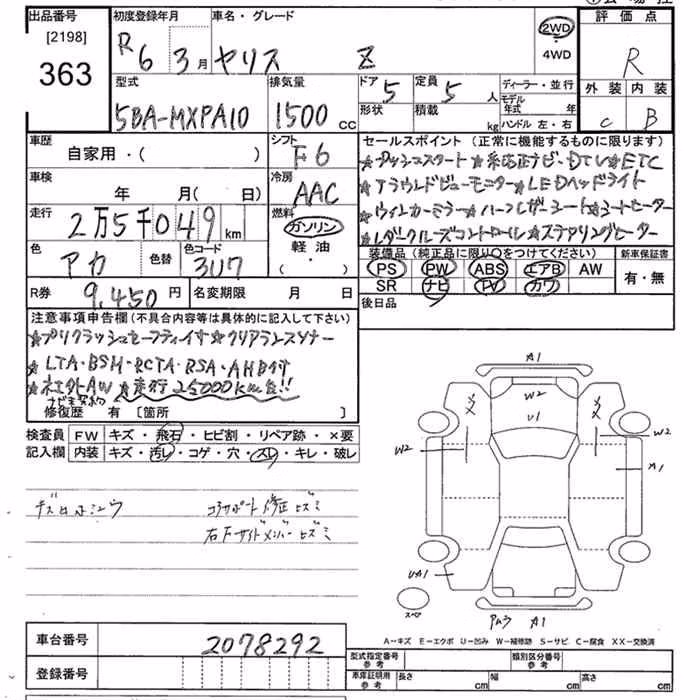 出品番号 初度登録年月 車名・グレード 評価点
[2198]
363
R6 3月 ヤリス Z
2WD
4WD
R
外装 内装
C B
型式 排気量 ドア 定員 ディーラー・並行
5BA-MXPA10 1500cc 5 5人
形状 積載 kg
モデル年式 年
ハンドル 左・右
車歴 シフト
自家用・( ) F6
車検 年 月( 日) 冷房 AAC
走行 2万5千049km 燃料 ガソリン
軽油
色 アカ 色替 色コード 3U7
R券 9,450円 名変期限 月 日
セールスポイント(正常に機能するものに限ります)
★プッシュスタート★純正ナビ・DTV★ETC
★アラウンドビューモニター★LEDヘッドライト
★ウィンカーミラー★ハーフレザーシート★シートヒーター
★レダクルーズコントロール★ステアリングヒーター
装備品(純正品に限り○をつけてください) 新車保証書
PS PW ABS エアB AW 有・無
SR ナビ TV カワ
後日品
注意事項申告欄(不具合内容等は具体的に記入して下さい)
★プリクラッシュセーフティ付★クリアランスソナー
★LTA・BSM・RCTA・RSA・AHB付
★社外AW★走行25000km台!!
修復歴 有 [箇所 ]
検査員 FW キズ・飛石・ヒビ割・リペア跡・×要
記入欄 内装 キズ・汚レ・コゲ・穴・スレ・キレ・破レ
コアサポート修正ヒズミ
右Fサイドメンバーヒズミ
A1
W2
U1
W2
W2
A1
UA1
スペア
A1
A-キズ E-エクボ U-凹み W-補修跡 S-サビ C-腐食 XX-交換済
車台番号 2078292
登録番号
型式指定番号 参考 類別区分番号 参考
車庫証明用 参考 長さ cm 幅 cm 高さ cm